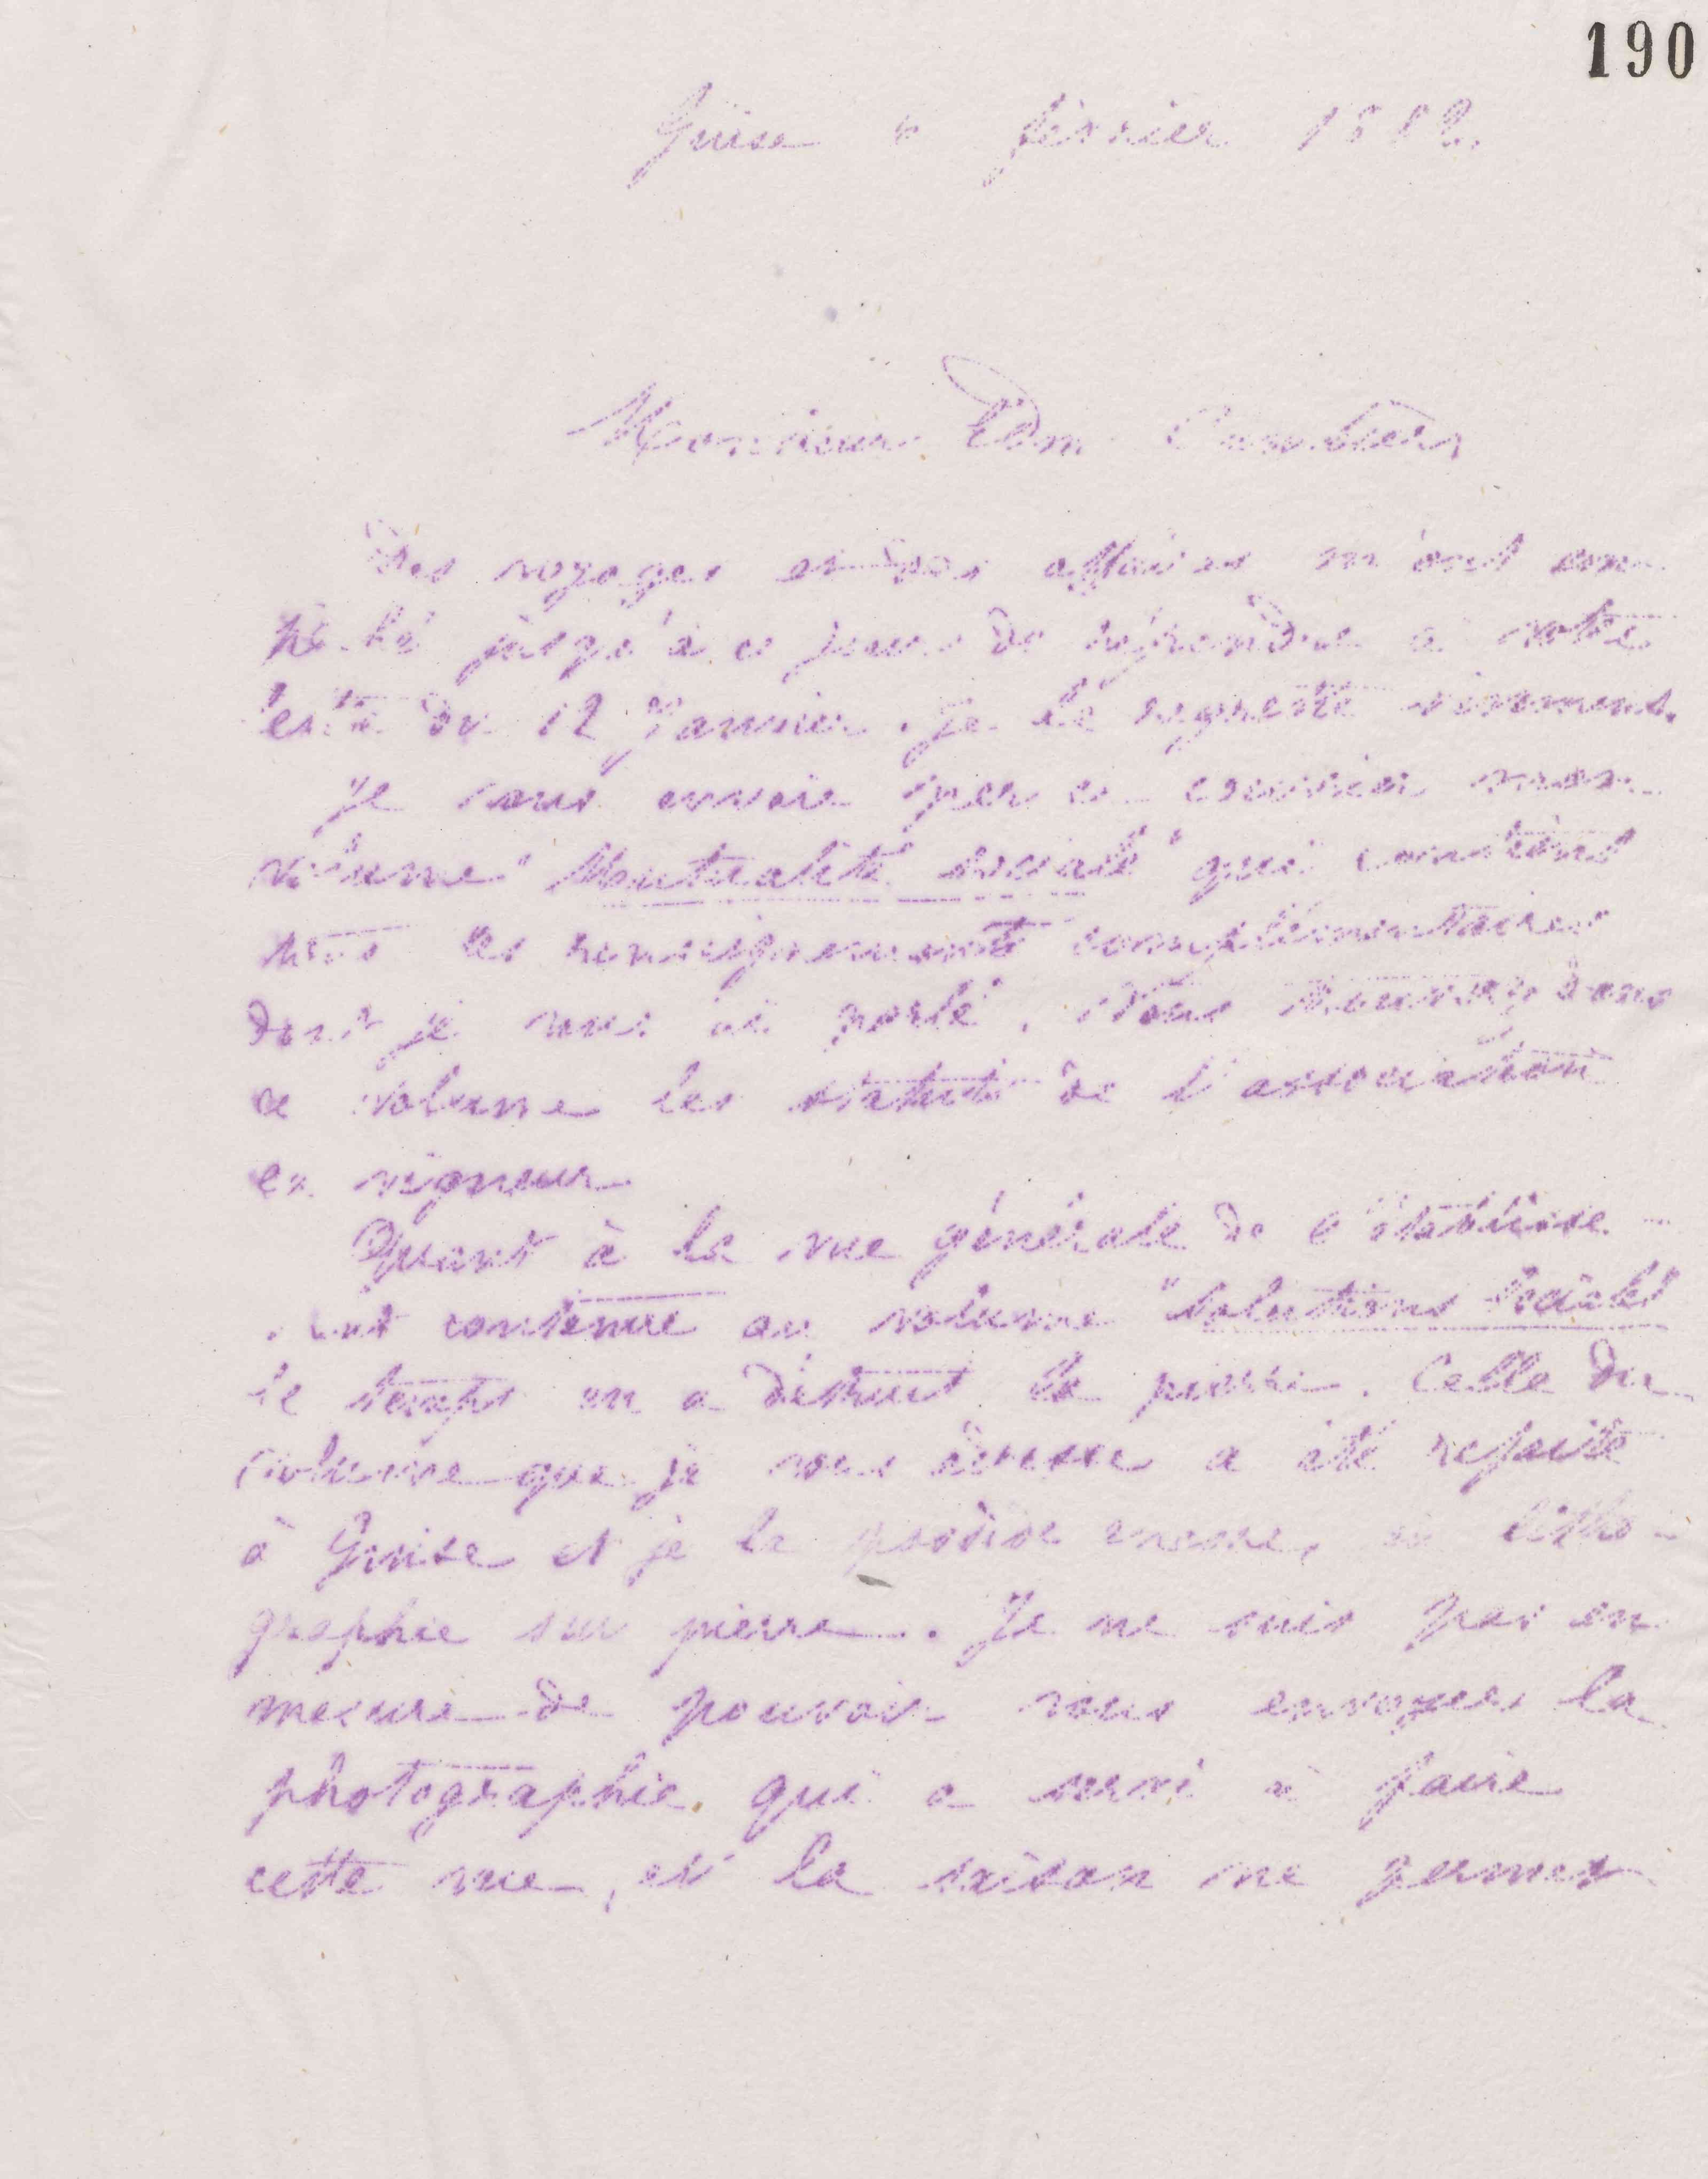 190
Guise février 1882.
Monsieur Edm.
Des voyages et des affaires m'ont em-
pêché jusqu'à ce jour de répondre à votre
lettre du 12 Janvier. Je le regrette vivement.
Je vous envoie par ce courrier mon
volume "Mutualité sociale" qui contient
tous les renseignements complémentaires
dont je vous ai parlé. Vous trouverez dans
ce volume les statuts de l'association
en vigueur.
Quant à la vue générale de
contenue au volume "Solutions Sociales
le temps en a détruit la pierre. Celle du
volume que je vous adresse a été refaite
à Guise et je la possède encore, en litho-
graphie sur pierre. Je ne suis pas en
mesure de pouvoir vous envoyer la
photographie qui a servi à faire
cette vue, et la saison ne permet